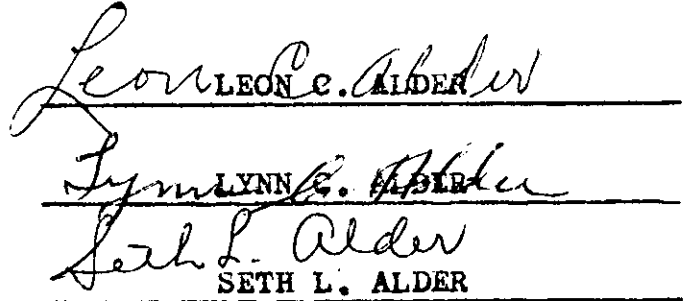 Leon C. Alder
LEON C. ALDER
Lynn C. Alder
LYNN C. ALDER
Seth L. Alder
SETH L. ALDER